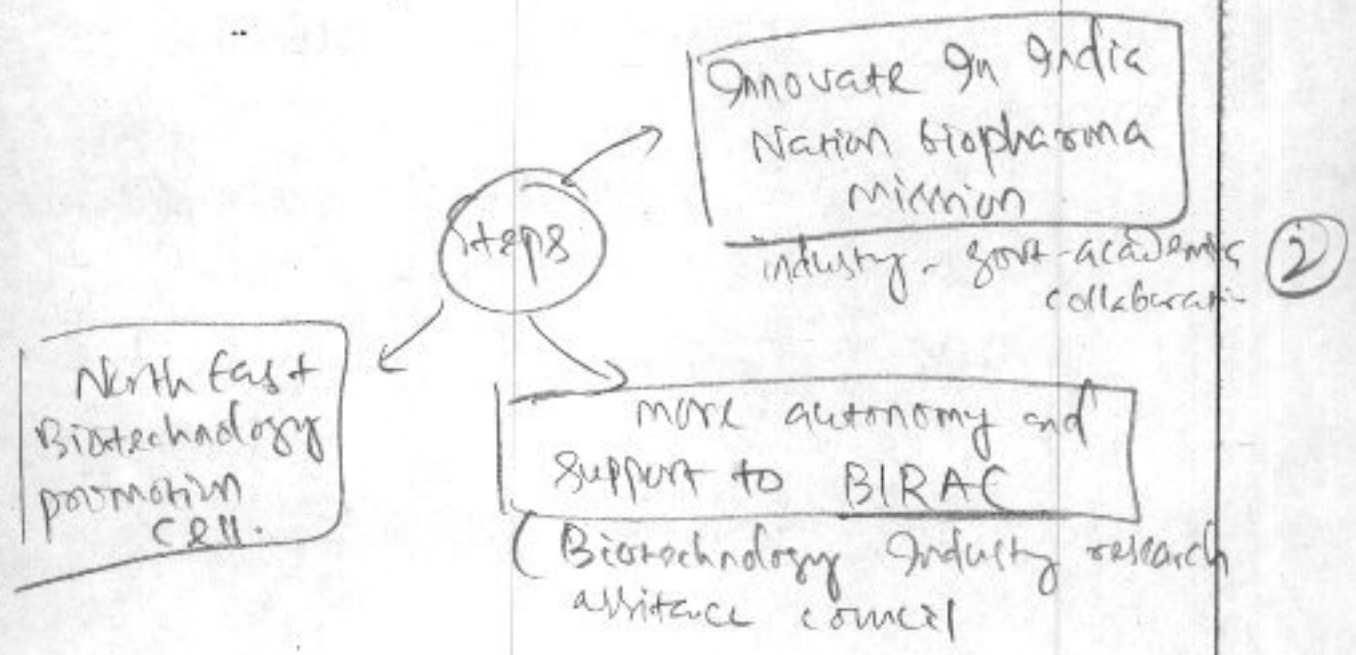 Innovate In India
Nation biopharma
mission
industry - govt - academic
collaborati
②
steps
North East
Biotechnology
promotion
cell.
more autonomy and
support to BIRAC
(Biotechnology Industry research
assitance council